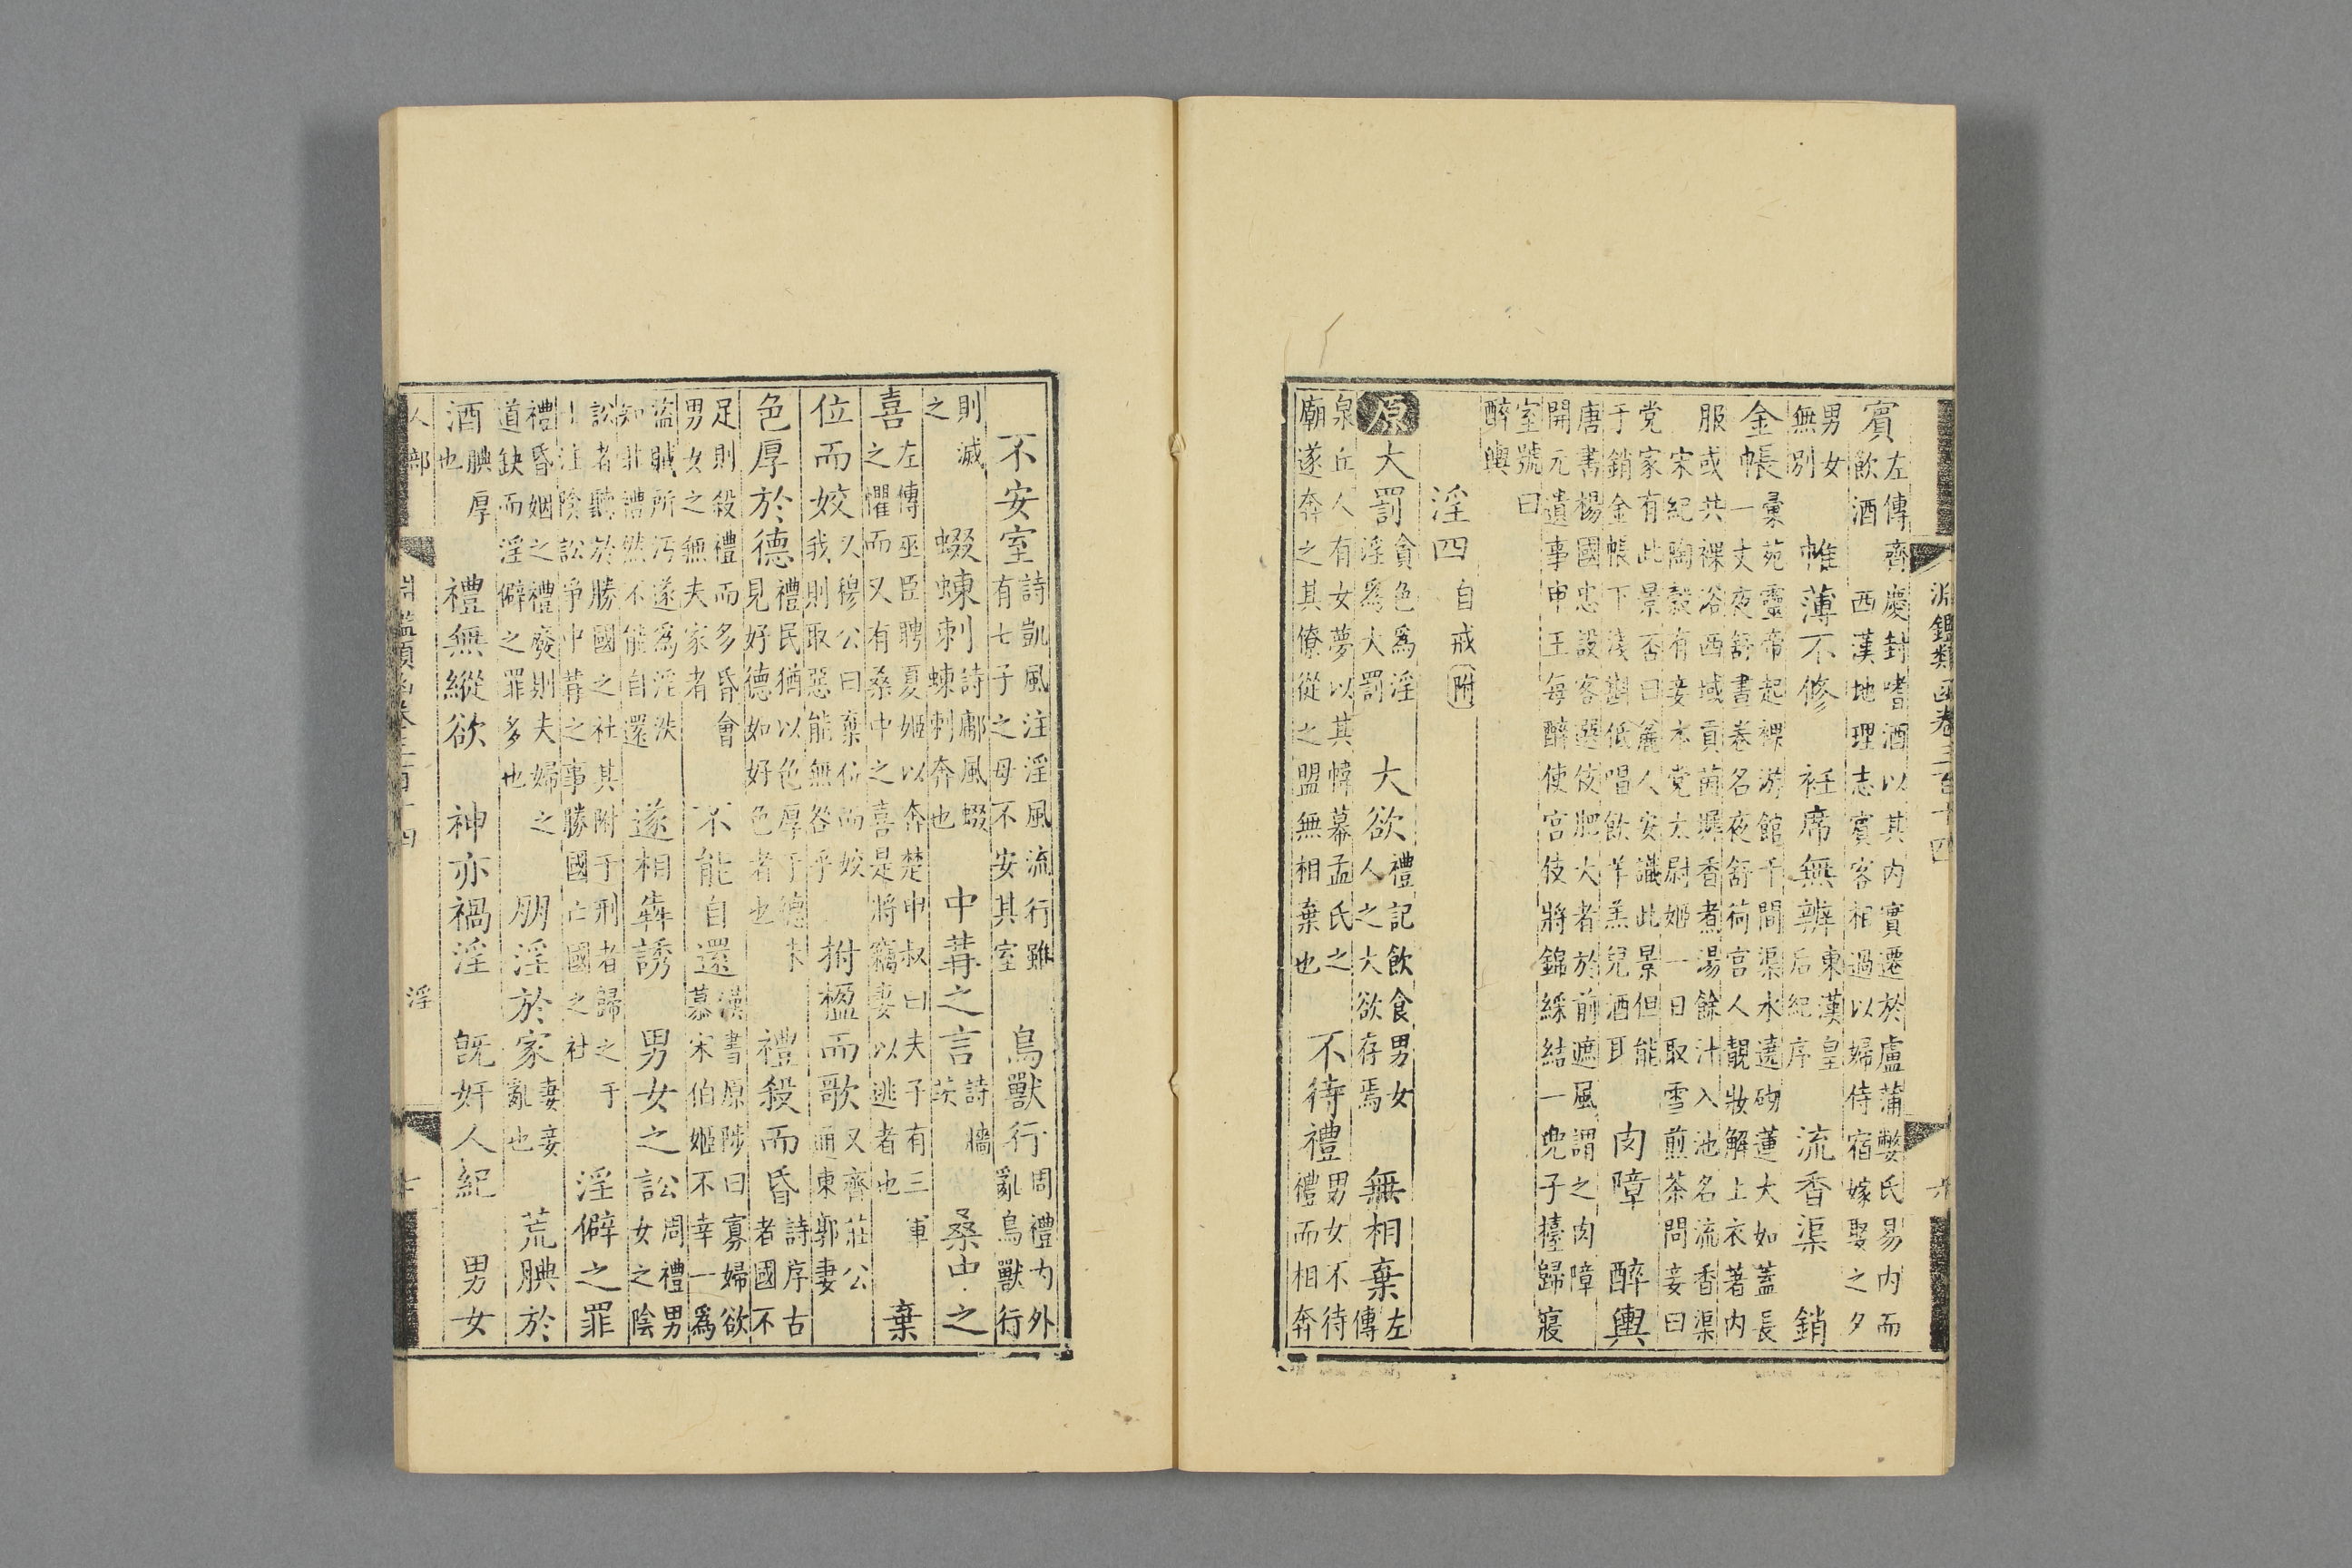 淵鑑類函卷三百十四
賓左傳齊慶封嗜酒以其内實遷於盧蒲嫳氏易内而飲酒 西漢地理志賓客相過以婦侍宿嫁娶之夕
男女無別 帷薄不修 袵席無辨東漢皇后紀序 流香渠 銷
金帳彚苑靈帝起裸游館千間渠水遶砌蓮大如蓋長一丈夜舒晝卷名夜舒荷宮人靚妝解上衣著内
服或共裸浴西域貢茵墀香煮湯餘汁入池名流香渠 宋紀陶穀有妾本党太尉姬一日取雪煎茶問妾曰
党家有此景否曰麄人安識此景但能于銷金帳下淺斟低唱飲羊羔兒酒耳 肉障 醉輿
唐書楊國忠設客選伎肥大者於前遮風謂之肉障開元遺事申王每醉使宫伎將錦綵結一兜子擡歸寢
室號曰醉輿
淫四自戒附
原大罰貪色爲淫淫爲大罰 大欲禮記飲食男女人之大欲存焉 無相棄左傳
泉丘人有女夢以其幃幕孟氏之廟遂奔之其僚從之盟無相棄也 不待禮男女不待禮而相奔
不安室詩凱風注淫風流行雖有七子之母不安其室 鳥獸行周禮内外亂鳥獸行
則滅之 蝃蝀刺詩鄘風蝃蝀刺奔也 中冓之言詩牆茨 桑中之
喜左傳巫臣聘夏姬以奔楚申叔曰夫子有三軍之懼而又有桑中之喜是將竊妻以逃者也 棄
位而姣又穆公曰棄位而姣我則取惡能無咎乎 拊楹而歌又齊莊公通東郭妻
色厚於德禮民猶以色厚于德未見好德如好色者也 禮殺而昏詩序古者國不
足則殺禮而多昏會男女之無夫家者 不能自還漢書原陟曰寡婦欲慕宋伯姬不幸一爲
盗賊所汚遂爲淫泆知非禮然不能自還 遂相犇誘 男女之訟周禮男女之陰
訟者聽於勝國之社其附于刑者歸之于士注陰訟爭中冓之事勝國亡國之社 淫僻之罪
禮昏姻之禮廢則夫婦之道缺而淫僻之罪多也 朋淫於家妻妾亂也 荒腆於
酒腆厚也 禮無縱欲 神亦禍淫 旣奸人紀 男女
人部 淵鑑類函卷三百十四 淫